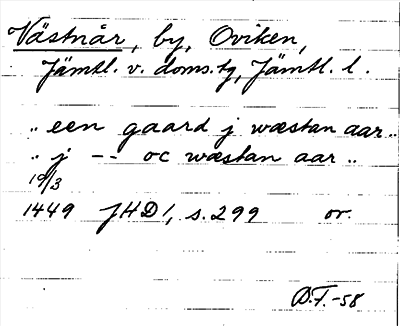 Västnår, by, Oviken,
Jämtl. v. doms.tg, Jämtl. l.
„ een gaard j wæstan aar „
„ j -- oc wæstan aar „
19/3
1449 JHD 1, s. 299 or.
D.F.-58